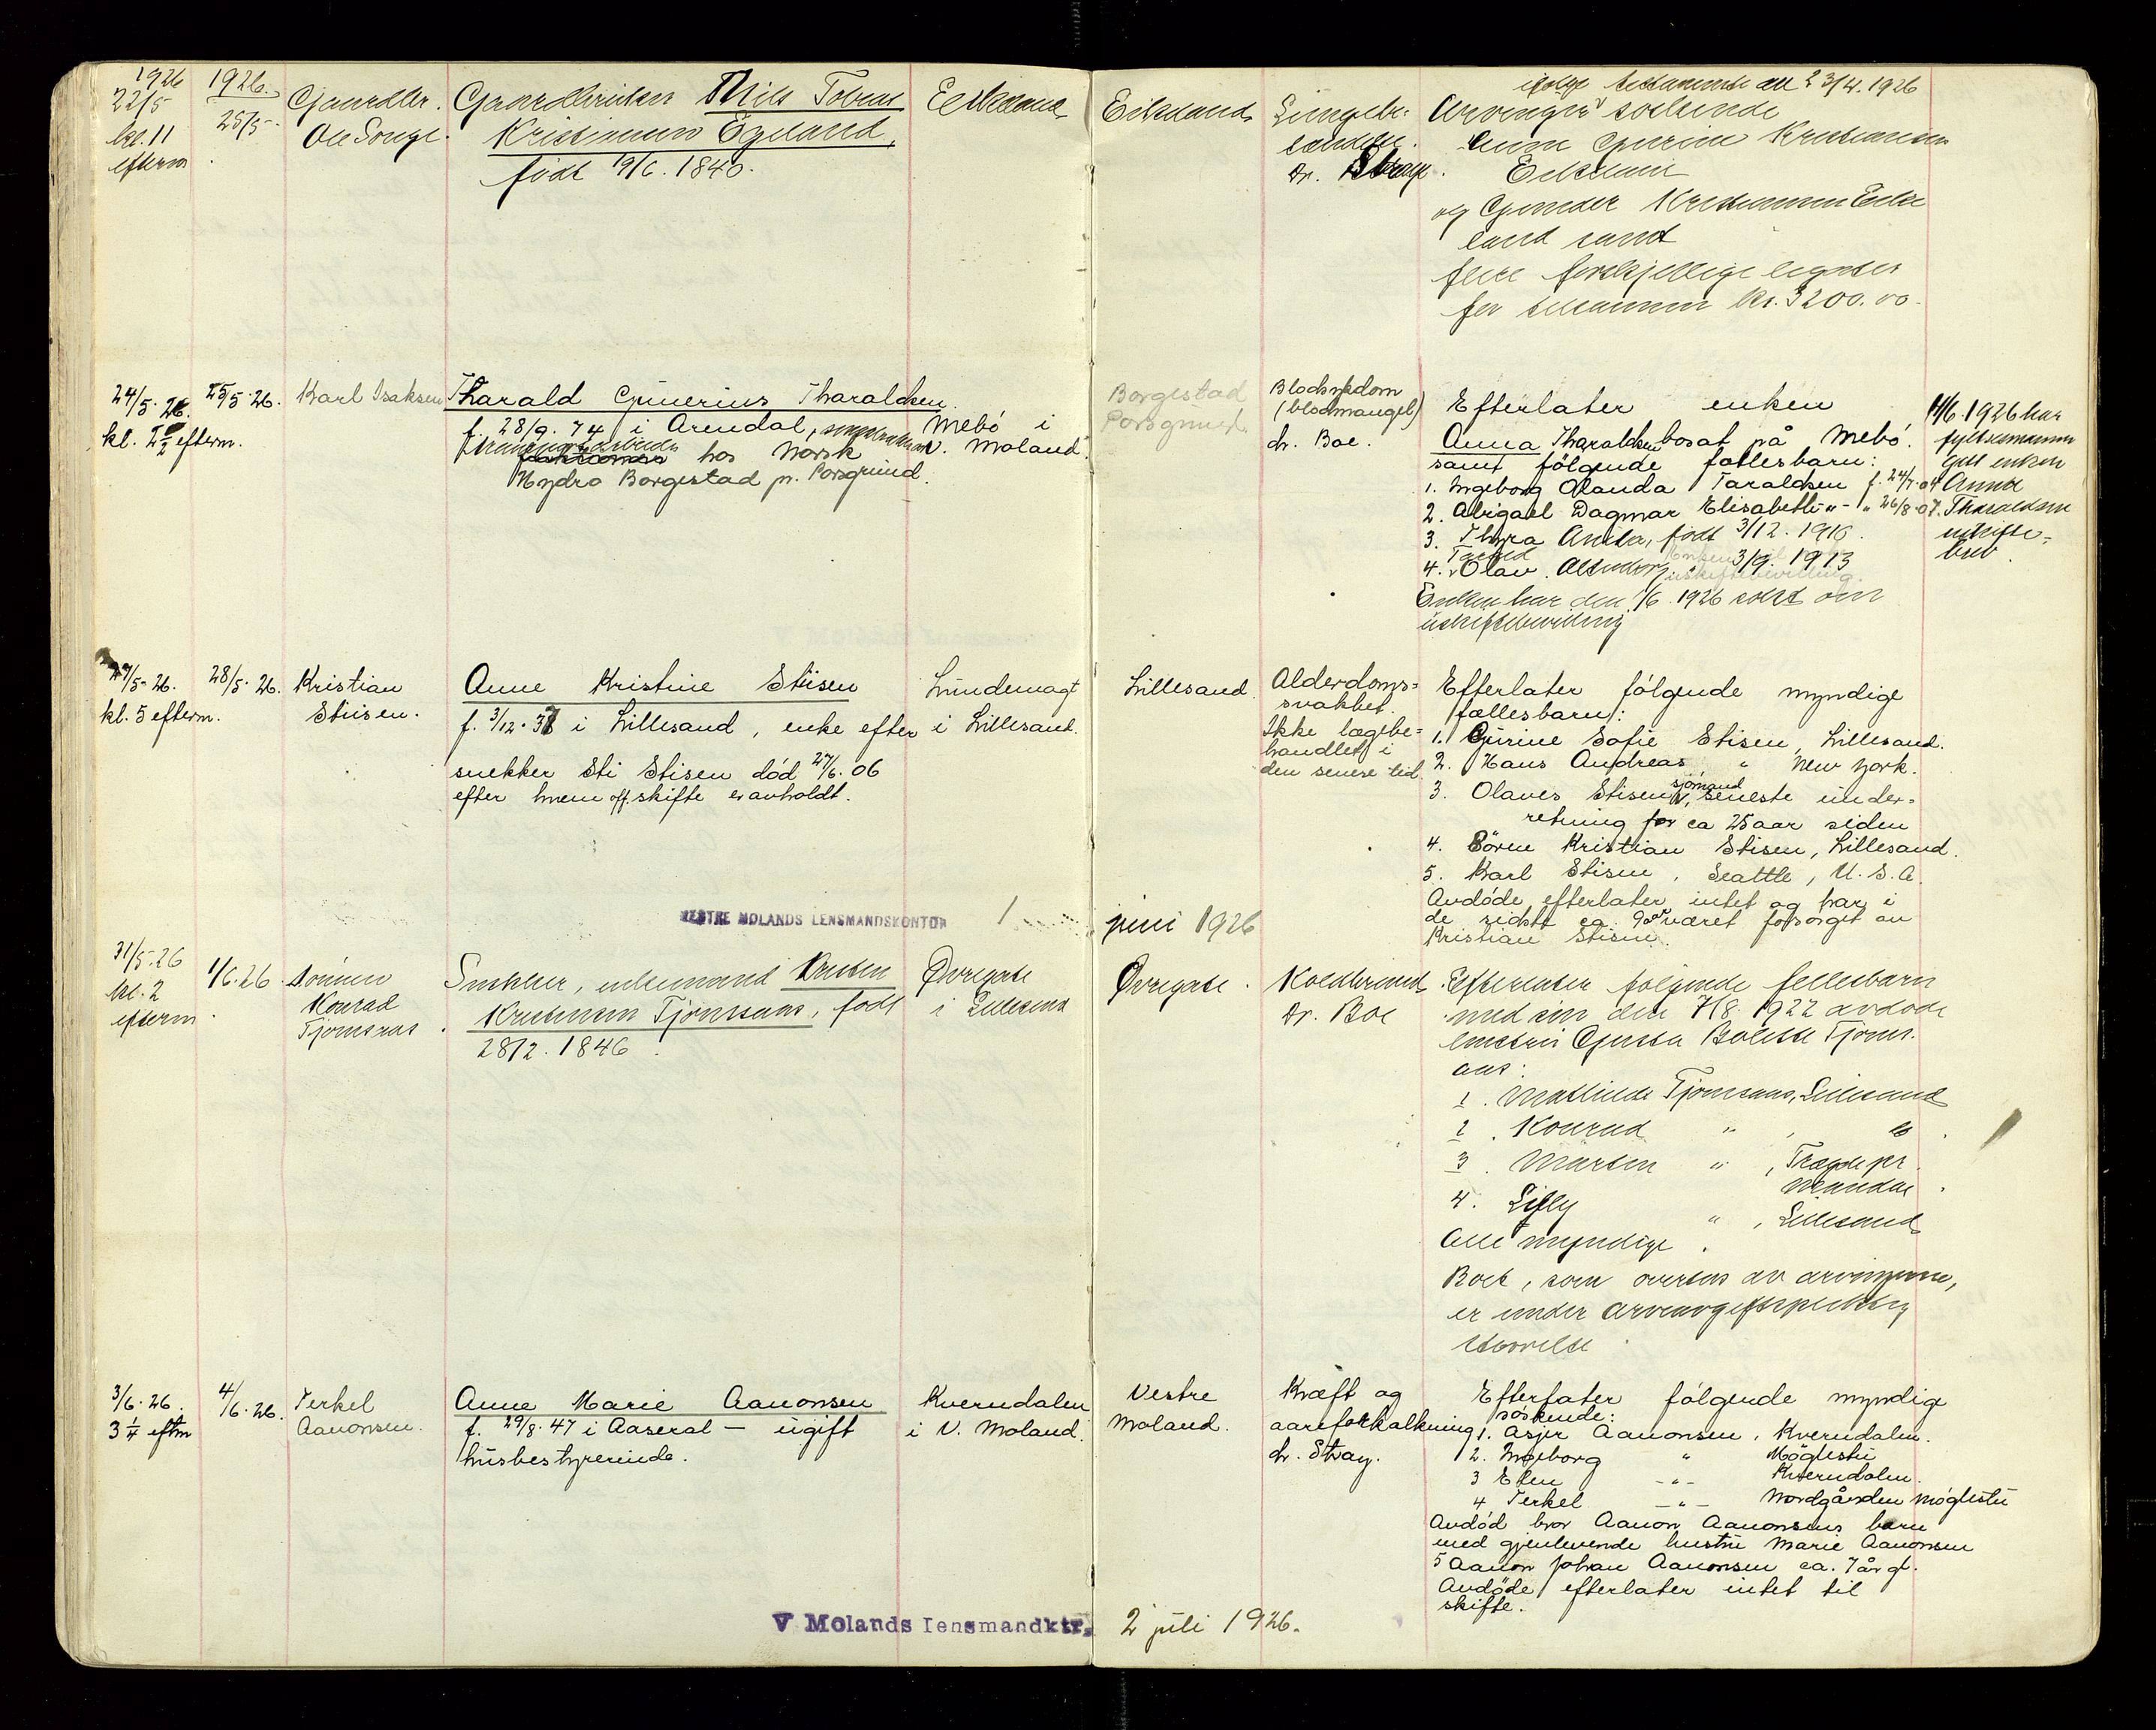 1926
22/5
kl. 11
efterm
1926.
25/5
Gaardbr.
Ole Songe.
Gaardbruker Nils Tobias
Kristiansen Egeland,
født 19/6. 1840.
Eikeland
Eikeland
Lungebe-
tændelse.
Dr. Stray.
ifølge testamente av 23/4. 1926
Arvinger søskende
Anne Gurine Kristiansen
Eikeland
og Gunder Kristiansen Eike
land samt
flere forskjellige legater
for tilsammen kr. 3200.00.
24/5. 26.
kl. 2 1/2 efterm.
25/5. 26.
Karl Isaksen
Tharald Gunerius Tharaldsen
f. 28/9. 74 i Arendal,
hos Norsk
Hydro Borgestad pr. Porsgrund.
Mebö i
V. Moland.
Borgestad
Porsgrund.
Blodsykdom
(blodmangel)
dr. Boe.
Efterlater enken
Anna Tharaldsen bosat på Mebö.
samt følgende fællesbarn:
1. Ingeborg Olanda Taraldsen f. 24/7. 04
2. Abigael Dagmar Elisabeth -"- " 26/8. 07.
3. Thyra Anita, født 3/12. 1910.
4. Olav 3/9. 1913
Enken har den 1/6. 1926 søkt om
uskiftebevilling
11/6. 1926 har
fylkesmannen
git enken
Anna
Tharaldsen
uskifte-
bev.
27/5. 26.
kl. 5 efterm.
28/5. 26.
Kristian
Stiisen.
Anne Kristine Stiisen
f. 3/12. 37 i Lillesand, enke efter
snekker Sti Stisen död 27/6. 06
efter hvem off. skifte er avholdt.
i Lillesand.
Lillesand.
Alderdoms-
svakhet.
Ikke lægebe-
handlet i
den senere tid.
Efterlater følgende myndige
fællesbarn:
1. Gurine Sofie Stisen, Lillesand.
2. Hans Andreas " New York.
3. Olaves Stisen, sjømand, seneste under-
retning for ca 25 aar siden
4. Sören Kristian Stisen, Lillesand.
5. Karl Stisen, Seattle, U. S. A.
Avdöde efterlater intet og har i
de sidste ca. 9 aar været forsörget av
Kristian Stisen.
VESTRE MOLANDS LENSMANDSKONTOR 1
juni 1926
31/5. 26
kl. 2
efterm.
1/6. 26.
Sønnen
Konrad
Tjomsaas.
Snekker, enkemand Kristen
Kristensen Tjomsaas, født
28/2. 1846.
Øvregate
i Lillesand
Øvregate.
Koldbrand
Dr. Boe
Efterlater følgende fellesbarn
med sin den 7/8. 1922 avdøde
hustru Gusta Tjoms-
aas:
1. Mathilde Tjomsaas, Lillesand
2. Konrad " , "
3. Martin " , Trægde pr.
Mandal.
4. Lilly " , Lillesand
Alle myndige.
Boet, som overtas av arvingene,
er under arveavgiftspliktig
størrelse.
3/6. 26.
3 1/4 eftm
4/6. 26.
Terkel
Aanonsen.
Anne Marie Aanonsen
f. 29/8. 47 i Aaseral — ugift
husbestyrerinde.
Kverndalen
i V. Moland.
Vestre
Moland.
Kræft og
aareforkalkning
dr. Stray.
Efterlater følgende myndige
søskende:
1. Asjer Aanonsen, Kverndalen.
2. Ingeborg " Möglestu
3 Elen -"- Kverndalen.
4 Terkel -"- Nordgården Möglestu
Avdöd bror Aanon Aanonsens barn
med gjenlevende hustru Marie Aanonsen
5 Aanon Johan Aanonsen ca. 7 år gl.
Avdöde efterlater intet til
skifte.
V Molands lensmandktr. 2 juli 1926.